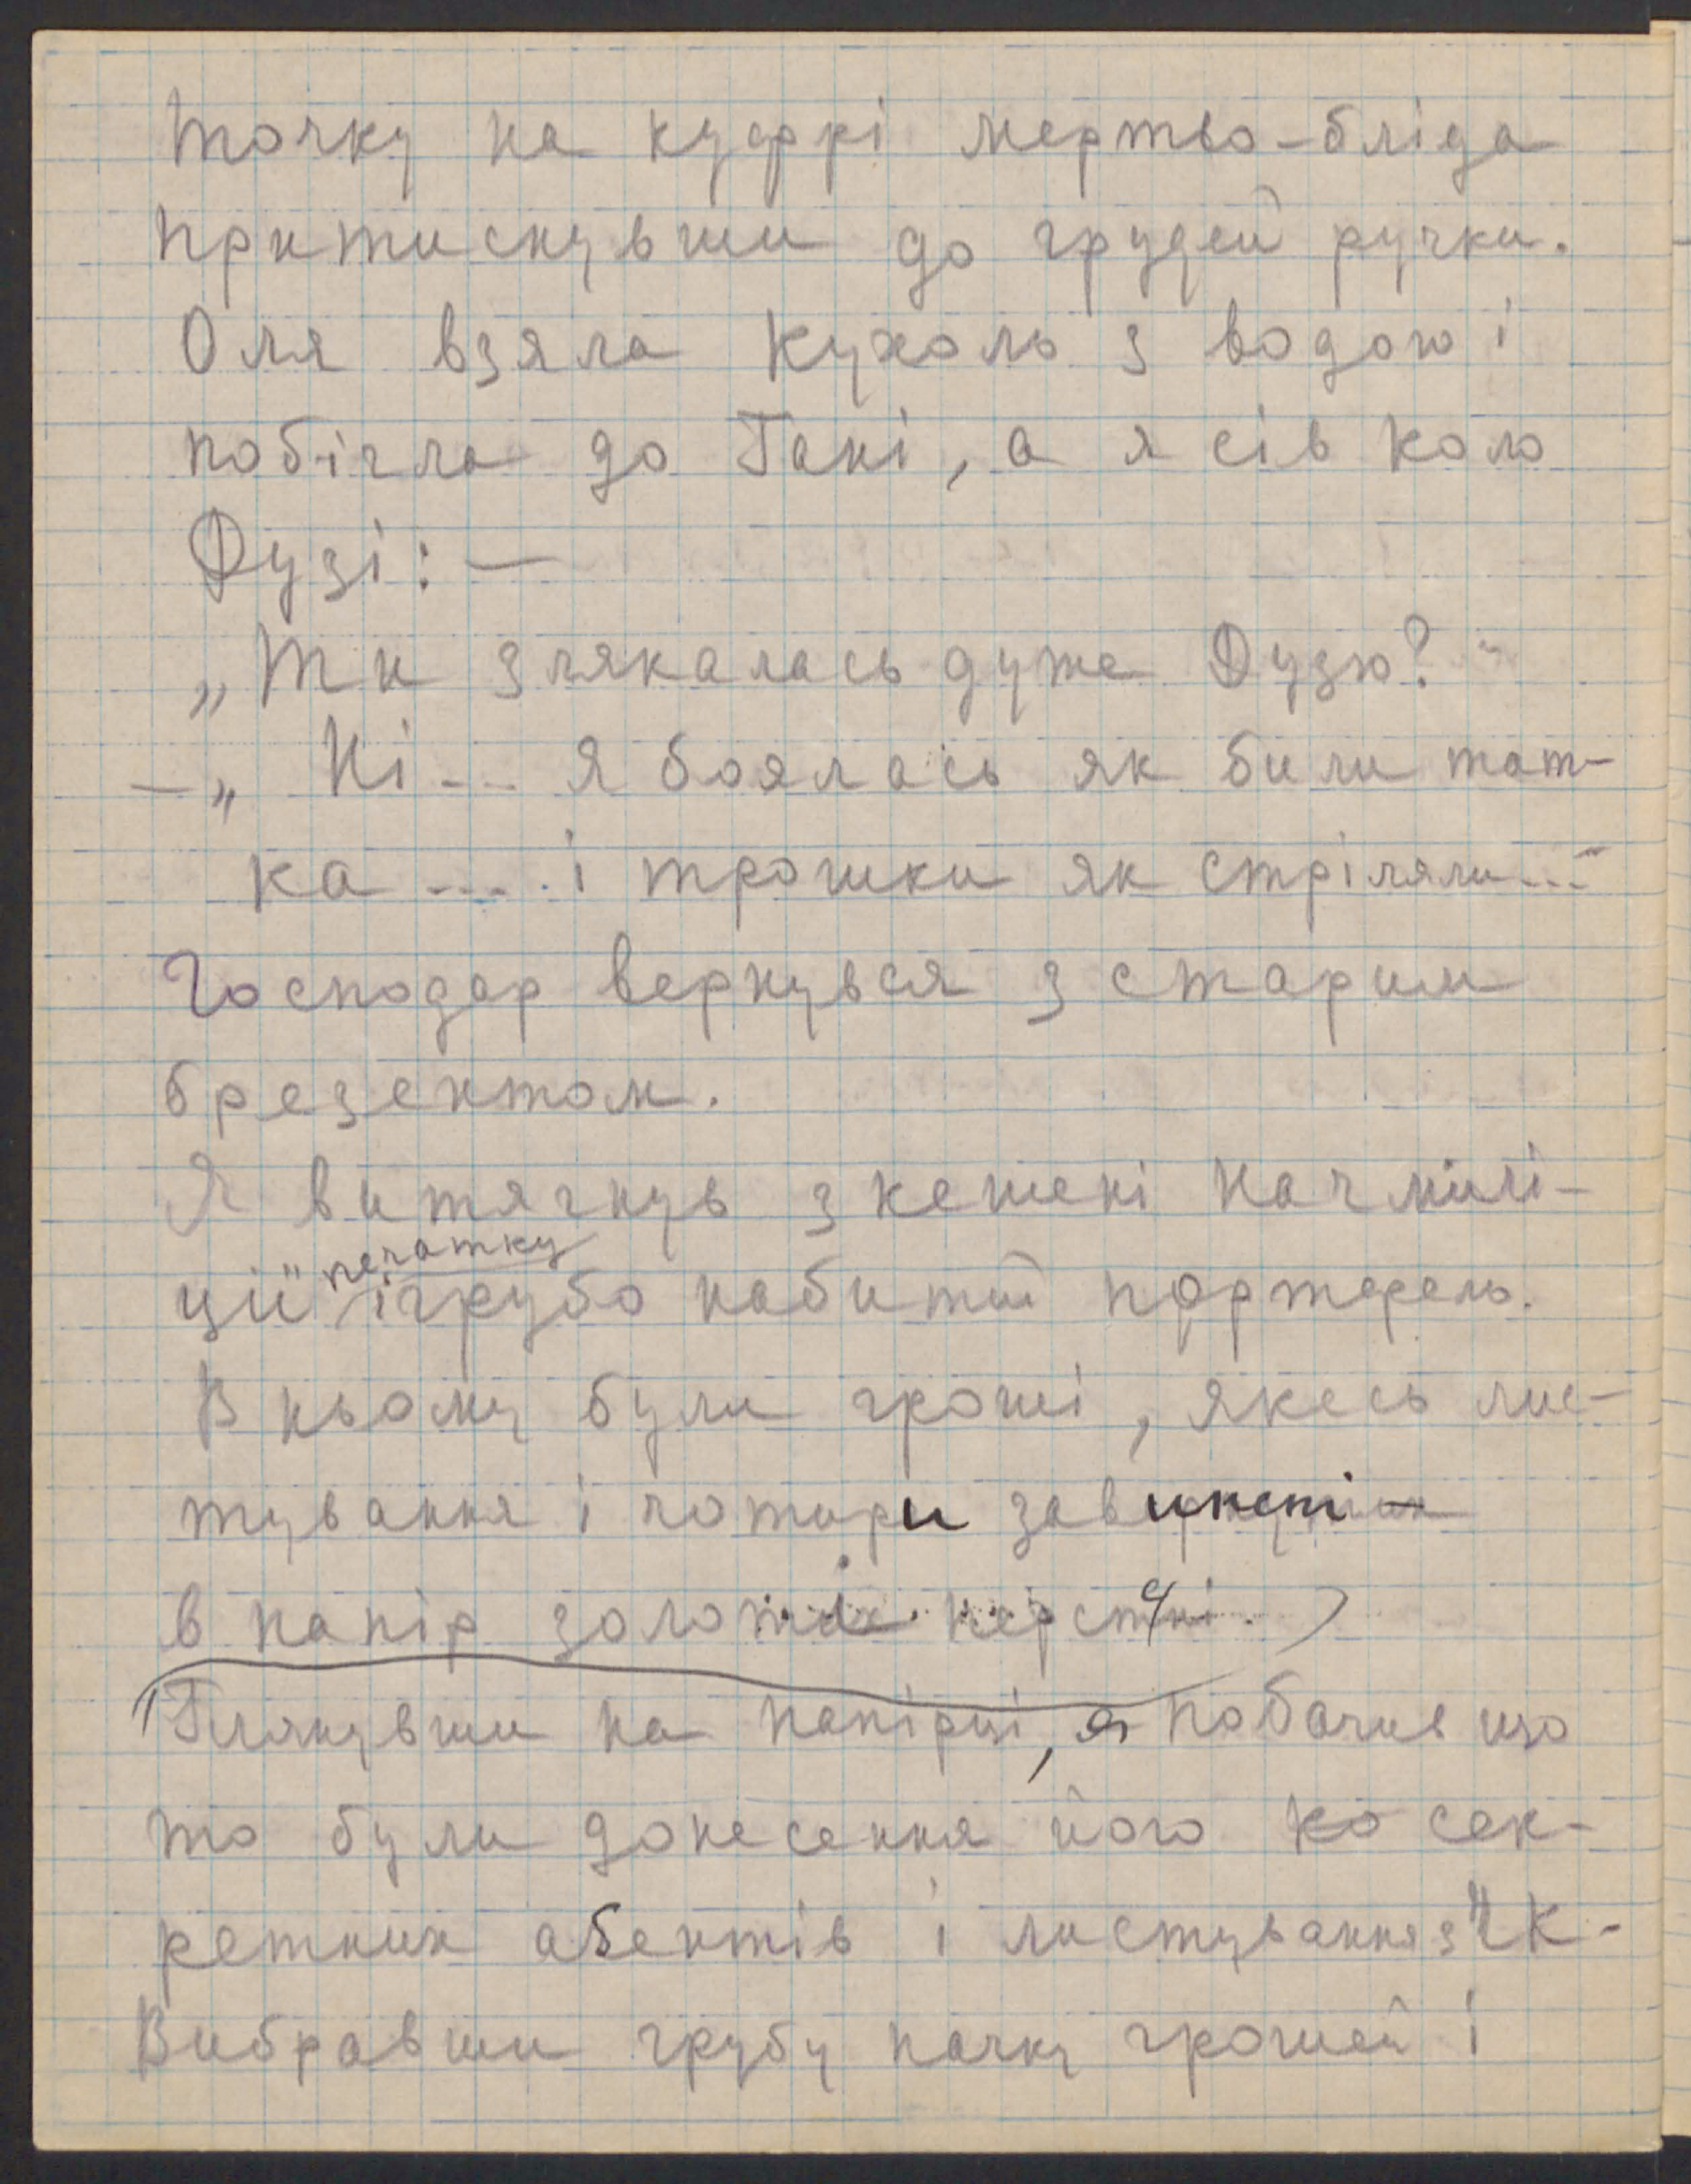 точку на куфрі мертво-бліда
притиснувши до грудей ручки.
Оля взяла кухоль з водою і
побігла до Гані, а я сів коло
Дузі: —
„Ти злякалась дуже Дузю?"
— „ Ні... Я боялась як били тат-
ка .... і трошки як стріляли..."
Господар вернувся з старим
брезентом.
Я витягнув з кешені начміл­і-
ції печатку і грубо набитий портфель.
В ньому були гроші, якесь лис-
тування і чотири завинені
в папір золоті персні.
Глянувши на папірці, я побачив що
то були донесення його ко сек-
ретних агентів і листування з ЧК-
Вибравши грубу пачку грошей і